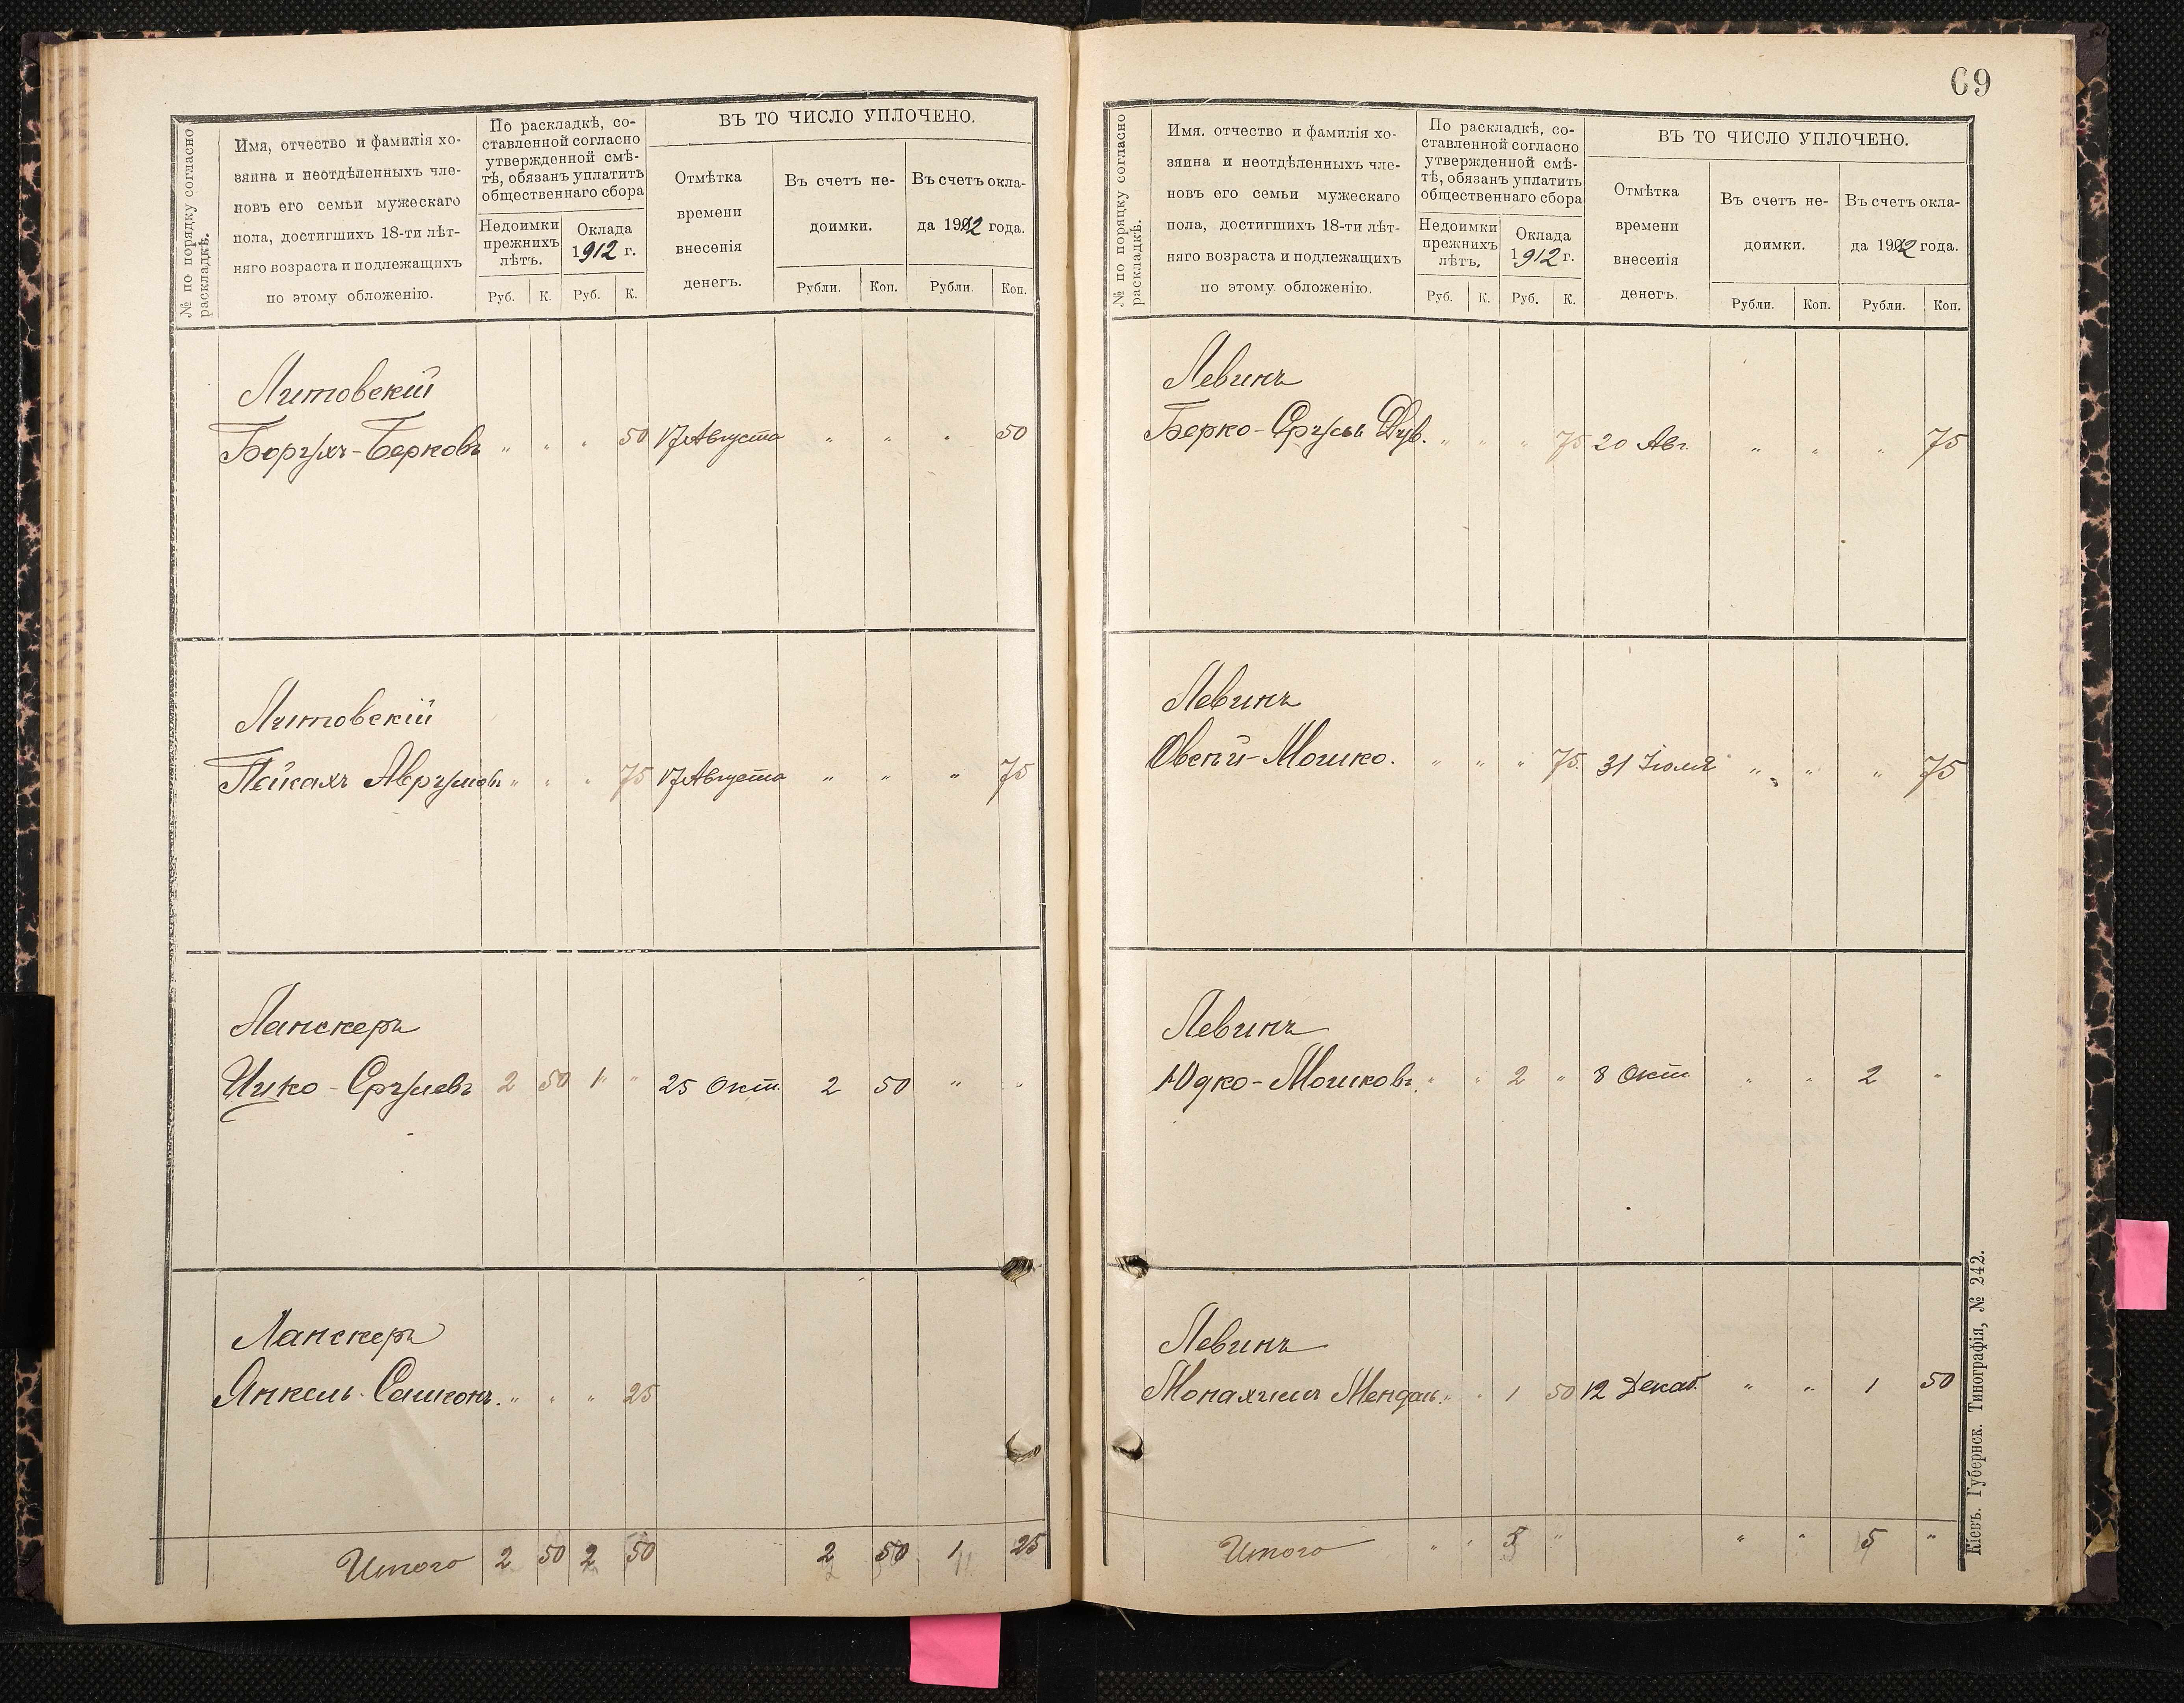 69
№ по порядку согласно раскладкѣ.
Имя, отчество и фамилія хо-
зяина и неотдѣленныхъ чле-
новъ его семьи мужескаго
пола, достигшихъ 18-ти лѣт-
няго возраста и подлежащихъ
по этому обложенію.
По раскладкѣ, со-
ставленной согласно
утвержденной смѣ-
тѣ, обязанъ уплатить
общественнаго сбора
Недоимки
прежнихъ
лѣтъ.
Оклада
1912 г.
Руб. К. Руб. К.
ВЪ ТО ЧИСЛО УПЛОЧЕНО.
Отмѣтка
времени
внесенія
денегъ.
Въ счетъ не-
доимки.
Въ счетъ окла-
да 1912 года.
Рубли. Коп. Рубли. Коп.
Литовскій
Борухъ-Берковъ " " " 50 17 Августа " " " 50
Литовскій
Пейсахъ Аврумовъ " " " 75 17 Августа " " " 75
Ланскеръ
Ицко-Срулевъ 2 50 1 " 25 Окт. 2 50 " "
Ланскеръ
Янкель " " " 25
Итого 2 50 2 50 2 50 1 25
№ по порядку согласно раскладкѣ.
Имя. отчество и фамилія хо-
зяина и неотдѣленныхъ чле-
новъ его семьи мужескаго
пола, достигшихъ 18-ти лѣт-
няго возраста и подлежащихъ
по этому обложенію.
По раскладкѣ, со-
ставленной согласно
утвержденной смѣ-
тѣ, обязанъ уплатить
общественнаго сбора
Недоимки
прежнихъ
лѣтъ.
Оклада
1912 г.
Руб. К. Руб. К.
ВЪ ТО ЧИСЛО УПЛОЧЕНО.
Отмѣтка
времени
внесенія
денегъ.
Въ счетъ не-
доимки.
Въ счетъ окла-
да 1912 года.
Рубли. Коп. Рубли. Коп.
Левинъ
Берко- " " " 75 20 Авг. " " " 75
Левинъ
Овсѣй-Мошко. " " " 75. 31 Іюля " " " 75
Левинъ
Юдко-Мошковъ. " " 2 " 8 Окт " " 2 "
Левинъ
Монахимъ Мендель. " " 1 50 12 Декаб. " " 1 50
Итого " " 5 " " " 5 "
Кіевъ. Губернск. Типографія, № 242.